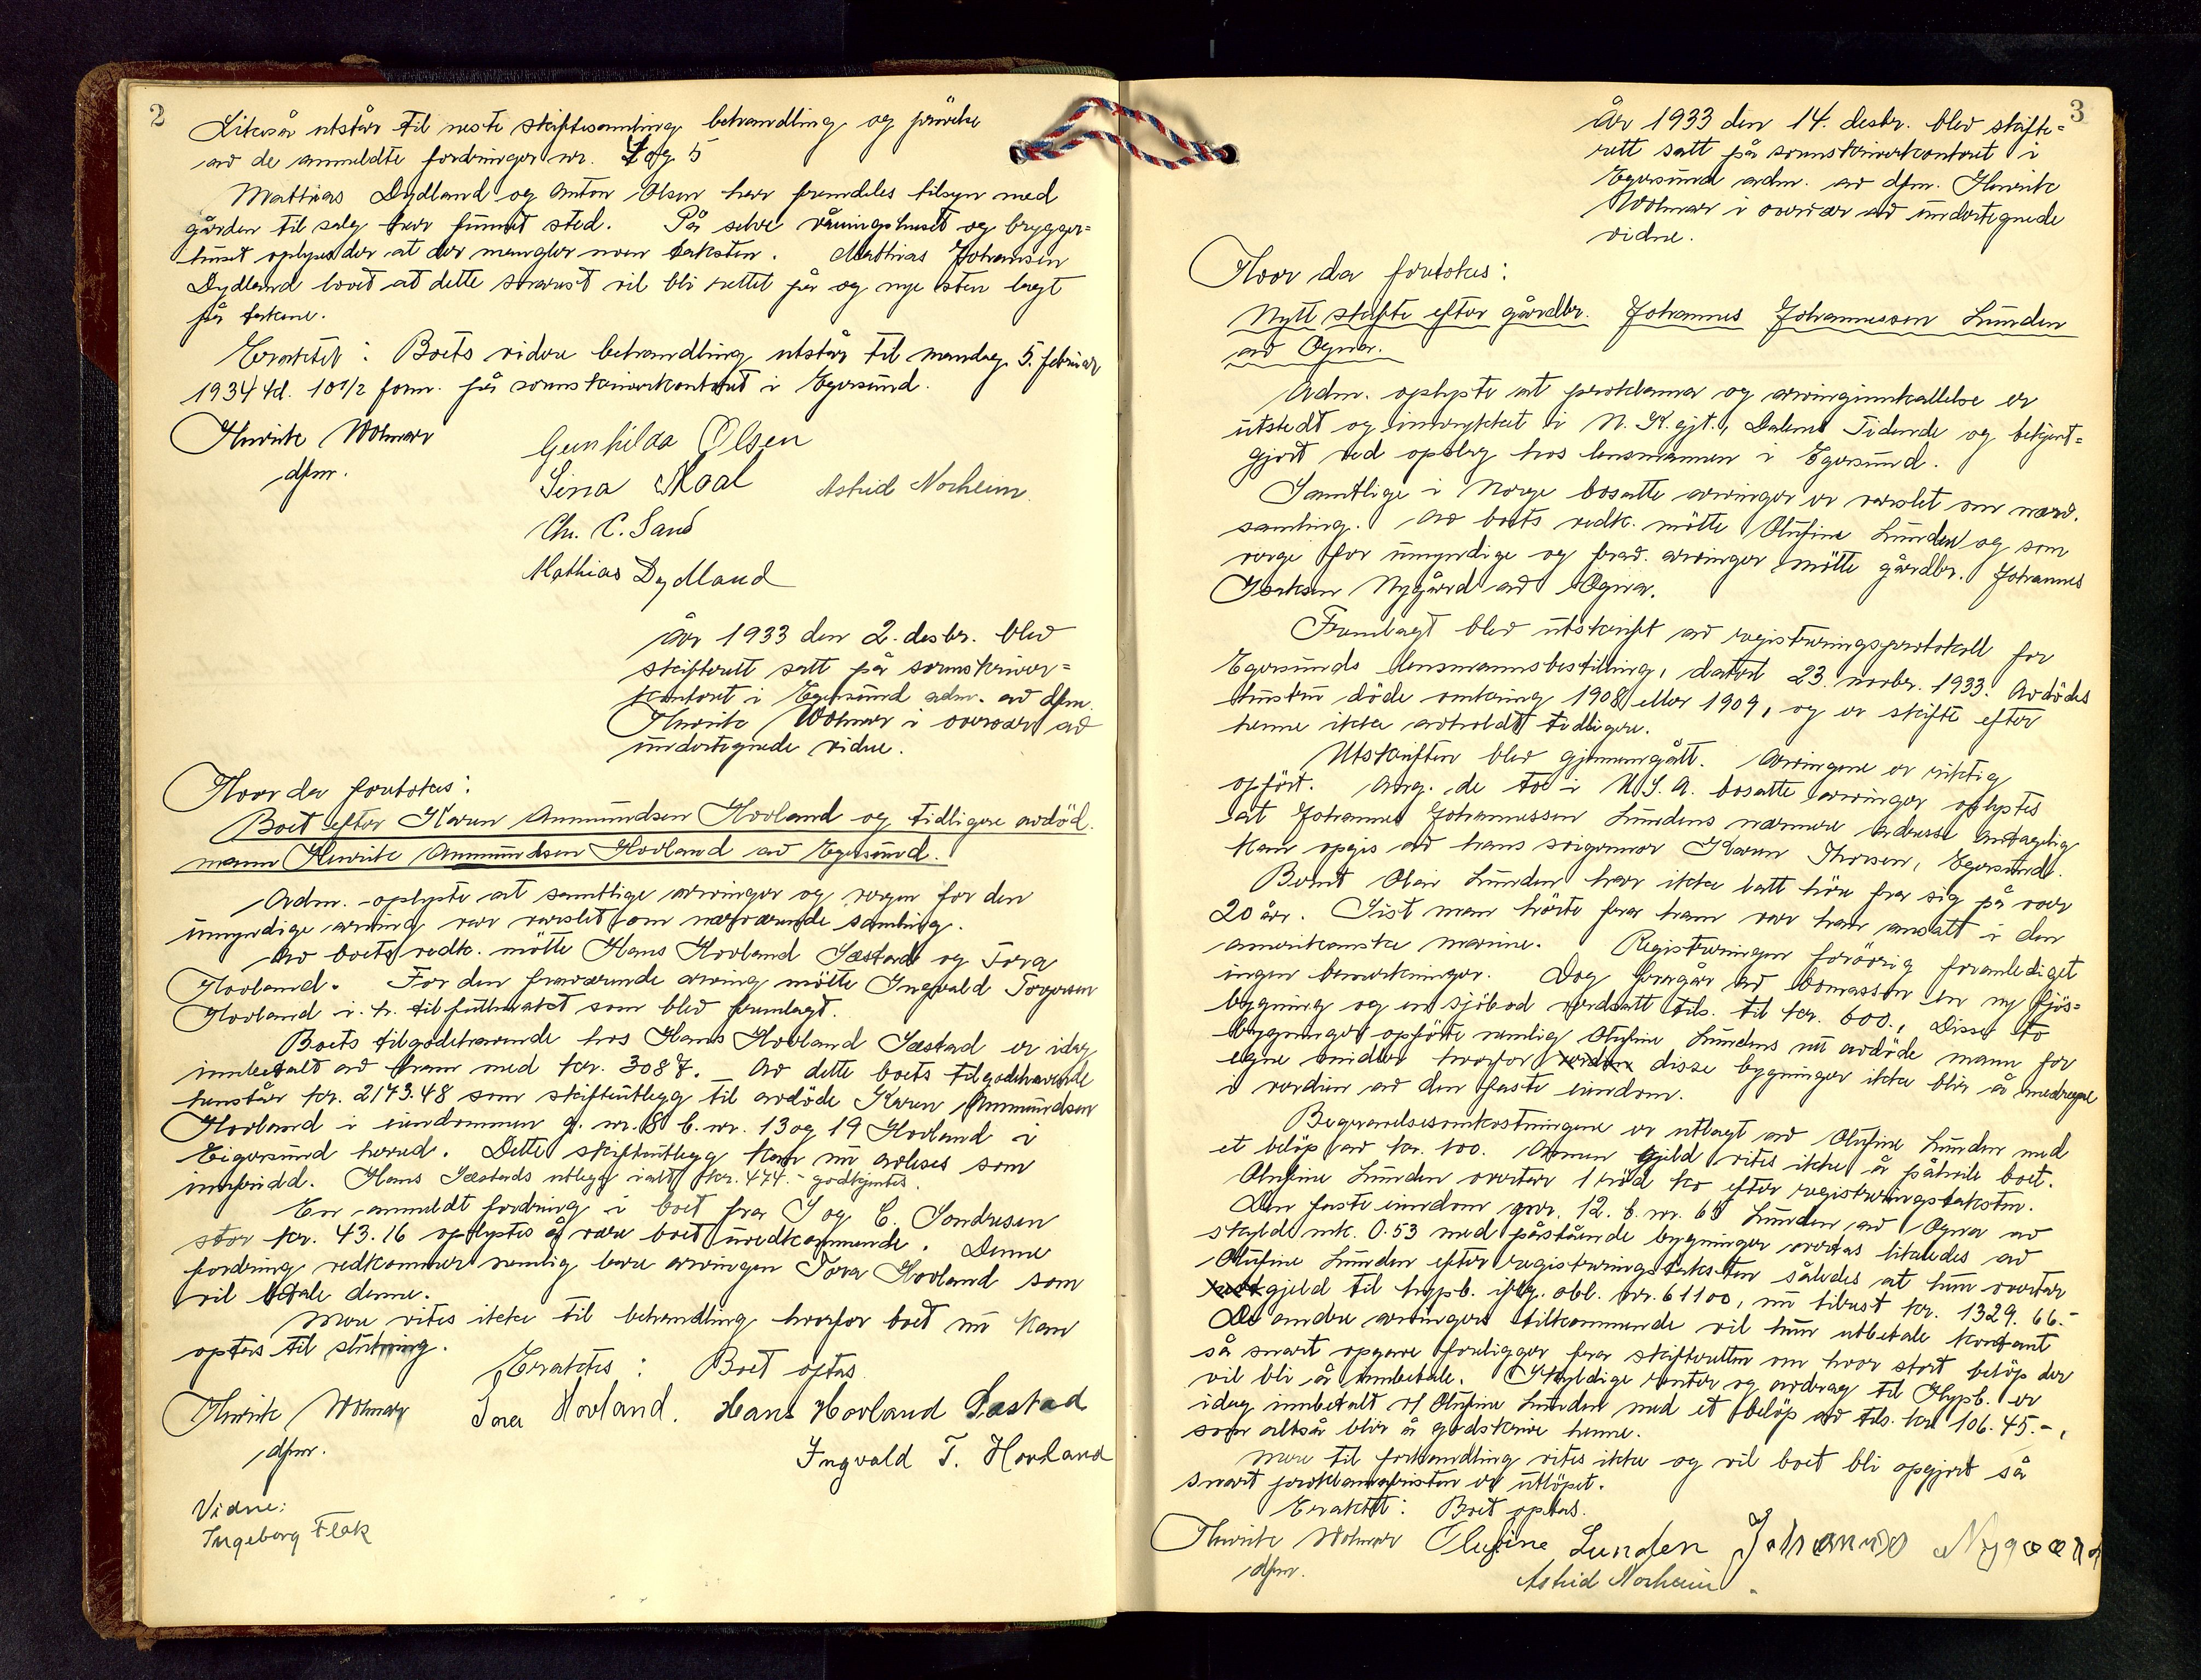 2
Likeså utstår til neste skiftesamling behandling og prøvelse
av de anmeldte fordringer nr. 4 og 5
Mathias Dydland og Anton Olsen har fremdeles tilsyn med
gården til salg har funnet sted. På selve våningshuset og brygger=
huset oplyses der at der mangler noen taksten. Mathias Johansen
Dydland lovet at dette snarest vil bli rettet på og nye sten lagt
på takene.
Eraktet: Boets videre behandling utstår til mandag 5. februar
1934 kl. 10 1/2 form. på sorenskriverkontoret i Egersund.
Henrik Wolmar
dfm.
Gunhilda Olsen
Sina Maal Astrid Norheim
Chr. C. Sand
Mathias Dydland
År 1933 den 2. desbr. blev
skifterett satt på sorenskriver=
kontoret i Egersund adm. av dfm.
Henrik Wolmar i overvær av
undertegnede vidne.
Hvor da foretokes:
Boet efter Karen Ammundsen Hovland og tidligere avdød.
mann Henrik Ammundsen Hovland av Egersund.
Adm. oplyste at samtlige arvinger og vergen for den
umyndige arving var varslet om nærværende samling.
Av boets vedk. møtte Hans Hovland Sæstad og Tora
Hovland. For den fraværende arving møtte Ingvald Torgersen
Hovland i. h. til fullmakt som blev fremlagt.
Boets tilgodehavende hos Hans Hovland Sæstad er idag
innbetalt av ham med kr. 3087. Av dette boets tilgodehavende
henstår kr. 2173.48 som skifteutlegg til avdøde Karen Ammundsen
Hovland i eiendommen g. nr. 8 b. nr. 13 og 19 Hovland i
Eigersund herred. Dette skifteutlegg kan nu avleses som
innfridd. Hans Sæstads utlegg ialt kr. 474.- godkjentes.
En anmeldt fordring i boet fra J og C. Sondresen
stor kr. 43.16 oplystes å være boet uvedkommende. Denne
fordring vedkommer nemlig bare arvingen Tora Hovland som
vil betale denne.
Mere vites ikke til behandling hvorfor boet nu kan
optas til slutning.
Eraktes: Boet optas
Henrik Wolmar Tora Hovland. Hans Hovland Sæstad
dfm.
Ingvald T. Hovland
Vidne:
Ingeborg Flak
3
År 1933 den 14. desbr. blev skifte=
rett satt på sorenskriverkontoret i
Egersund adm. av dfm. Henrik
Wolmar i overvær av undertegnede
vidne.
Hvor da foretokes:
Nytt skifte efter gårdbr. Johannes Johannessen Lunden
av Ogna.
Adm. oplyste at proklama og arvinginnkallelse er
utstedt og innrykket i N. K. gjt., Dalens Tidende og bekjent=
gjort ved opslag hos lensmannen i Egersund.
Samtlige i Norge bosatte arvinger er varslet om nærv.
samling. Av boets vedk. møtte Olufine Lunden og som
verge for umyndige og frav. arvinger møtte gårdbr. Johannes
Isaksen Nygård av Ogna.
Fremlagt blev utskrift av registreringsprotokoll for
Egersunds lensmannsbestilling, datert 23. novbr. 1933. Avdødes
hustru døde omkring 1908 eller 1909, og er skifte efter
henne ikke avholdt tidligere.
Utskriften blev gjennemgått. Arvingene er riktig
opført. Ang. de to i U.S.A. bosatte arvinger oplystes
at Johannes Johannessen Lundens nærmere adresse antagelig
kan opgis av hans svigermor Karen Thorsen, Egersund.
Bernt Olai Lunden har ikke latt høre fra sig på over
20 år. Sist man hørte fra ham var han ansatt i den
amerikanske marine. Registreringen forøvrig foranlediget
ingen bemerkninger. Dog foregår av bomassen en ny fjøs=
bygning og en sjøbod verdsatt tils. til kr. 600., Disse to
bygninger opførte nemlig Olufine Lundens nu avdøde mann for
egne midler hvorfor disse bygninger ikke blir å medregne
i verdien av den faste eiendom.
Begravelsesomkostningene er utlagt av Olufine Lunden med
et beløp av kr. 100. Annen gjeld vites ikke å påhvile boet.
Olufine Lunden overtar 1 rød ko efter registreringstaksten.
Den faste eiendom gnr. 12. b. nr. 65 Lunden av Ogna av
skyld mk. 0.53 med påstående bygninger overtas likeledes av
Olufine Lunden efter registreringstaksten således at hun overtar
gjeld til hypb. iflg. obl. nr. 61100, nu tilrest kr. 1329.66.-
De andre arvingers tilkommende vil hun utbetale kontant
så snart opgave foreligger fra skifteretten om hvor stort beløp der
vil bli å innbetale. Skyldige renter og avdrag til Hypb. er
idag innbetalt v/ Olufine Lunden med et beløp av tils. kr. 106.45.-,
som altså blir å godskrive henne.
Mere til forhandling vites ikke og vil boet bli opgjort så
snart proklamafristen er utløpet.
Eraktet: Boet optas.
Henrik Wolmar Olufine Lunden Johannes Nygaard
dfm.
Astrid Norheim